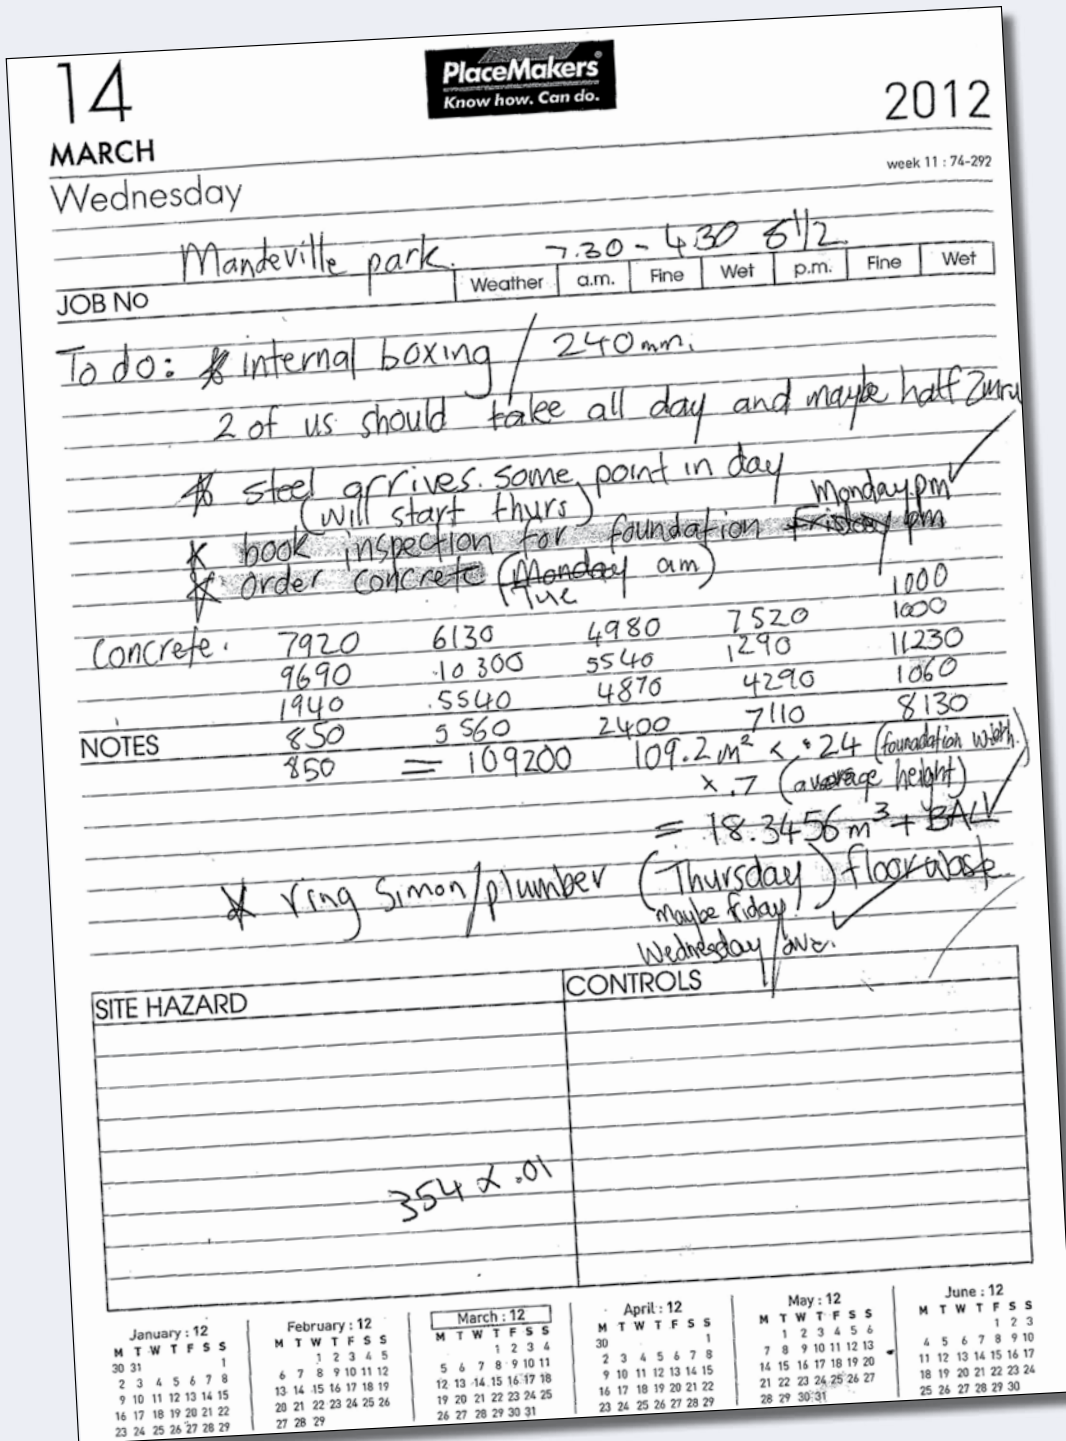 14
PlaceMakers
Know how. Can do.
2012
MARCH
week 11 : 74-292
Wednesday
Mandeville park. 7.30 - 4.30 8 1/2
JOB NO Weather a.m. Fine Wet p.m. Fine Wet
To do: * internal boxing / 240mm.
2 of us should take all day and maybe half
* steel arrives some point in day
(will start thurs) Monday pm
* book inspection for foundation Friday pm
* order concrete (Monday am)
Tue
1000
Concrete. 7920 6130 4980 7520 1000
9690 10300 5540 1290 11230
1940 5540 4870 4290 1060
850 5560 2400 7110 8130
NOTES
850 = 109200 109.2m² x .24 (foundation width.)
x .7 (average height)
= 18.3456m³ +
* ring Simon/plumber (Thursday) floor waste
Maybe friday!
Wednesday
SITE HAZARD CONTROLS
354 x .01
January : 12
M T W T F S S
30 31 1
2 3 4 5 6 7 8
9 10 11 12 13 14 15
16 17 18 19 20 21 22
23 24 25 26 27 28 29
February : 12
M T W T F S S
1 2 3 4 5
6 7 8 9 10 11 12
13 14 15 16 17 18 19
20 21 22 23 24 25 26
27 28 29
March : 12
M T W T F S S
1 2 3 4
5 6 7 8 9 10 11
12 13 14 15 16 17 18
19 20 21 22 23 24 25
26 27 28 29 30 31
April : 12
M T W T F S S
30 1
2 3 4 5 6 7 8
9 10 11 12 13 14 15
16 17 18 19 20 21 22
23 24 25 26 27 28 29
May : 12
M T W T F S S
1 2 3 4 5 6
7 8 9 10 11 12 13
14 15 16 17 18 19 20
21 22 23 24 25 26 27
28 29 30 31
June : 12
M T W T F S S
1 2 3
4 5 6 7 8 9 10
11 12 13 14 15 16 17
18 19 20 21 22 23 24
25 26 27 28 29 30